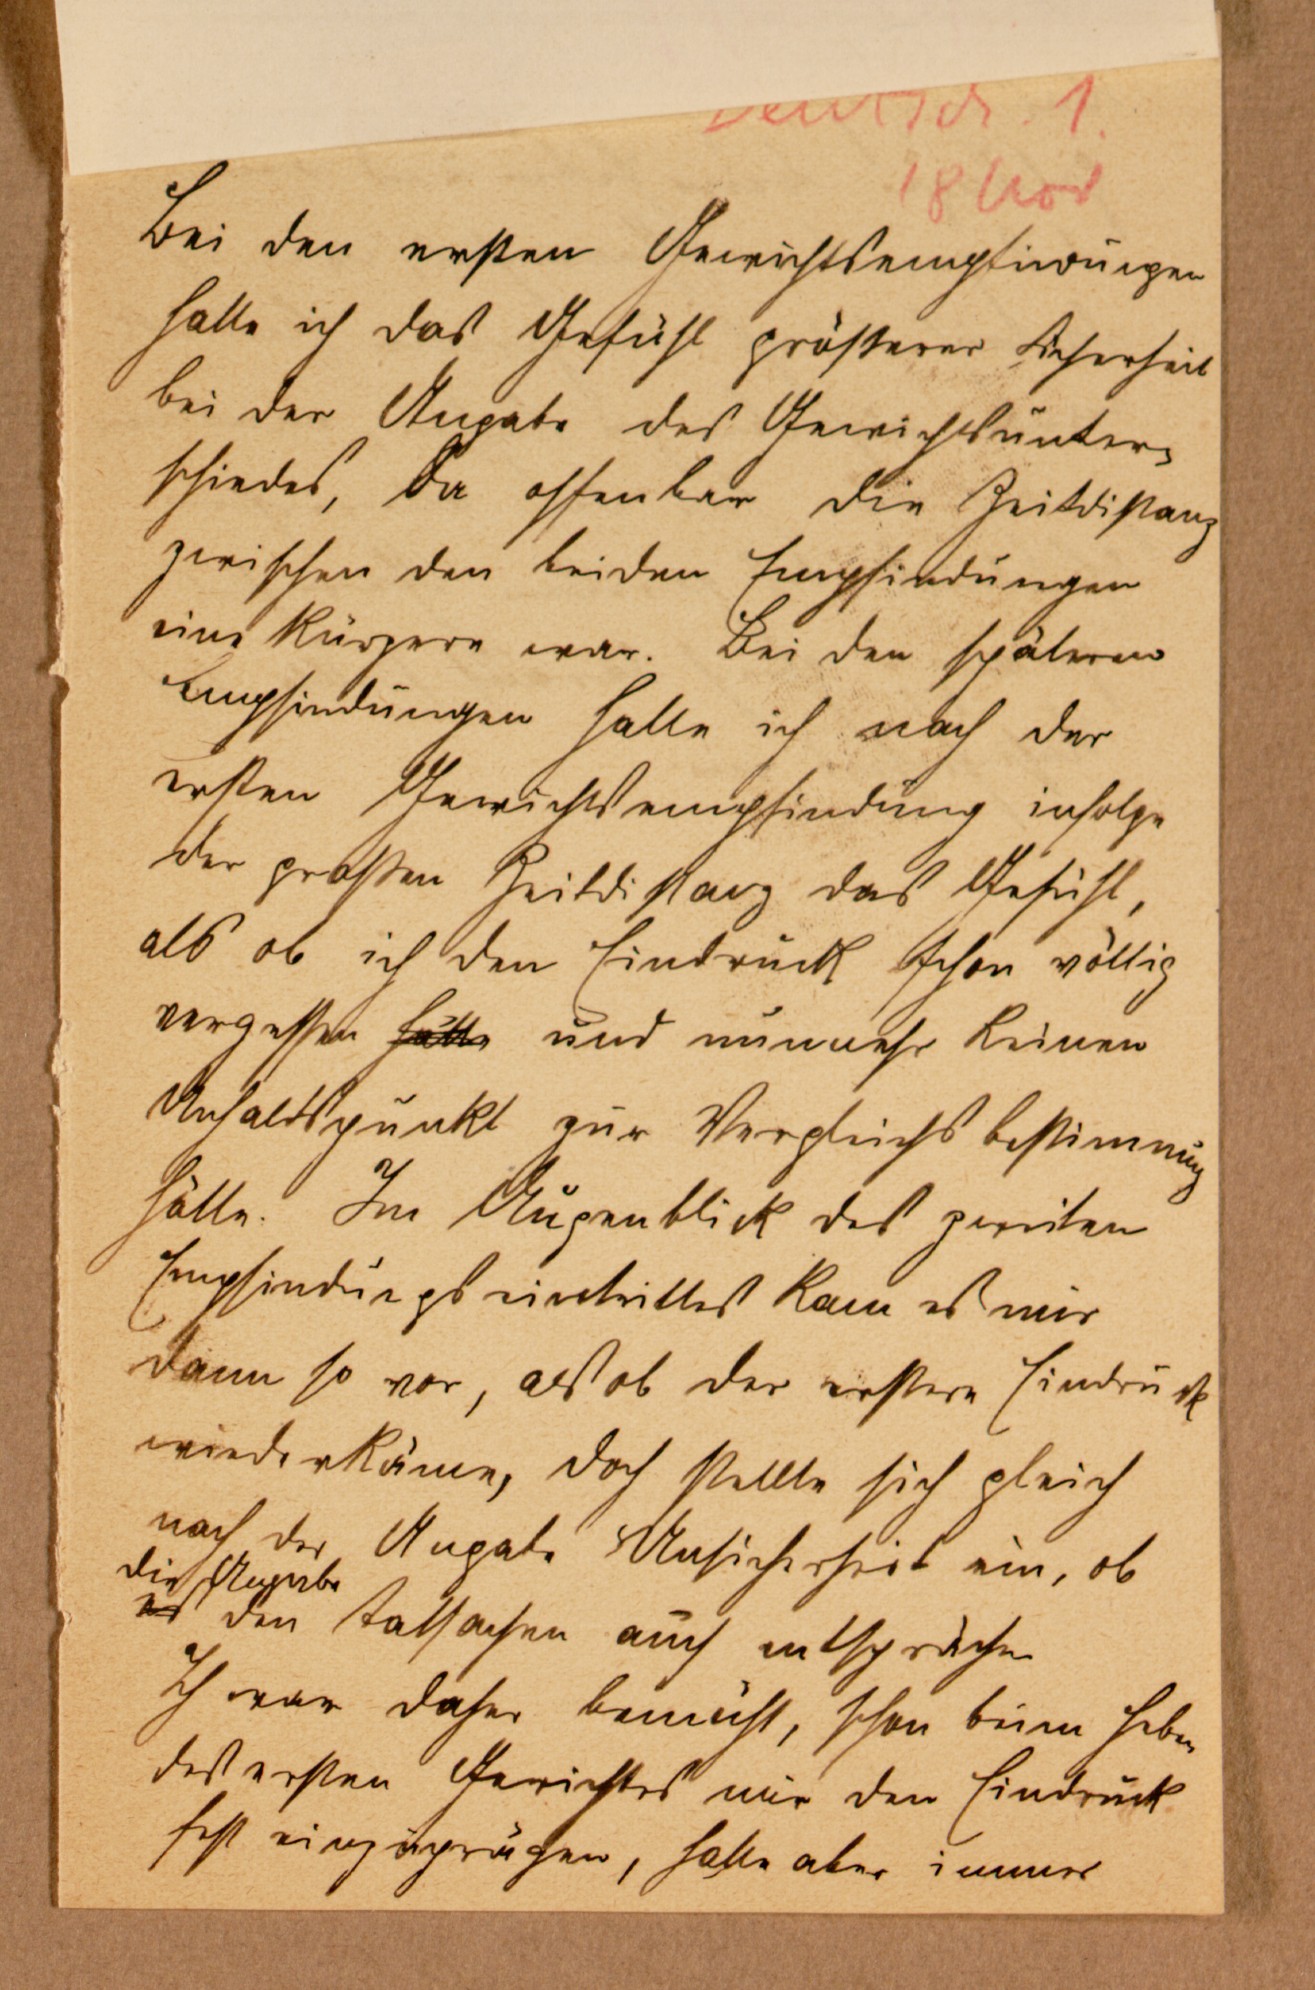 Deutsch. 1.
18 Nov
Bei den ersten Gewichtsempfindungen
hatte ich das Gefühl größerer Sicherheit
bei der Angabe des Gewichtsunter-
schiedes, da offenbar die Zeitdistanz
zwischen den beiden Empfindungen
eine kürzere war. Bei den späteren
Empfindungen hatte ich nach der
ersten Gewichtsempfindung infolge
der großen Zeitdistanz das Gefühl,
als ob ich den Eindruck schon völlig
vergessen hätte und nunmehr keinen
Anhaltspunkt zur Vergleichsbestimmung
hätte. Im Augenblick des zweiten
Empfindungseintrittes kam es mir
dann so vor, als ob der erstere Eindruck
wiederkäme, doch stellte sich gleich
nach der Angabe Unsicherheit ein, ob
die Angabe
es den Tatsachen auch entspräche
Ich war daher bemüht, schon beim Heben
des ersten Gewichtes mir den Eindruck
fest einzuprägen, hatte aber immer